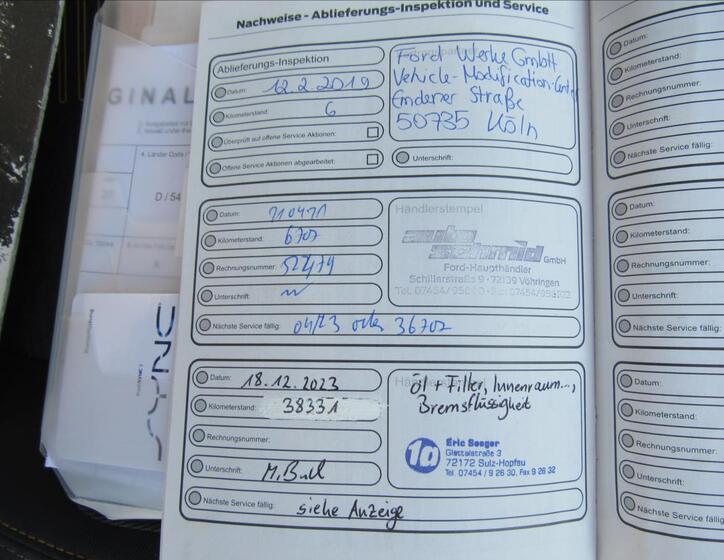 Nachweise - Ablieferungs-Inspektion und Service
Ablieferungs-Inspektion
Datum: 12.2.2019
Kilometerstand: 6
Überprüft auf offene Service Aktionen:
Offene Service Aktionen abgearbeitet:
Ford Werke GmbH
Vehicle-Modification-
Emdener Straße
50735 Köln
Unterschrift:
Datum:
Kilometerstand: 6702
Rechnungsnummer:
Unterschrift:
Nächste Service fällig: 04/23 oder 36702
Händlerstempel
auto schmid GmbH
Ford-Haupthändler
Schillerstraße 9 · 72189 Vöhringen
Tel. 07454/
Datum: 18.12.2023
Kilometerstand: 38331
Rechnungsnummer:
Unterschrift:
Nächste Service fällig: siehe Anzeige
Öl + Filter, Innenraum...,
Bremsflüssigkeit
10 Eric Seeger
72172 Sulz-Hopfau
Tel. 07454 / 9 26 30, Fax 9 26 32
Datum:
Kilometerstand:
Rechnungsnummer:
Unterschrift:
Nächste Service fällig:
Datum:
Kilometerstand:
Rechnungsnummer:
Unterschrift:
Nächste Service fällig:
Datum:
Kilometerstand:
Rechnungsnummer:
Unterschrift:
Nächste Service fällig:
GINAL
D / 54
SYNC